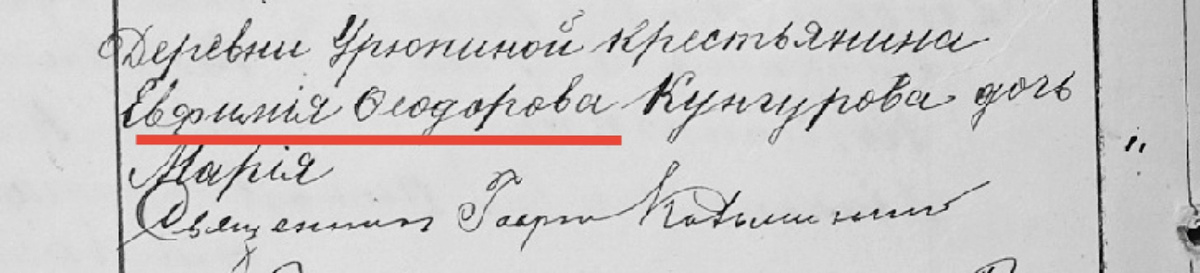 Деревни Урюпиной крестьянина
Евфимія Ѳеодорова Кунгурова дочь
Марія
Священник
„